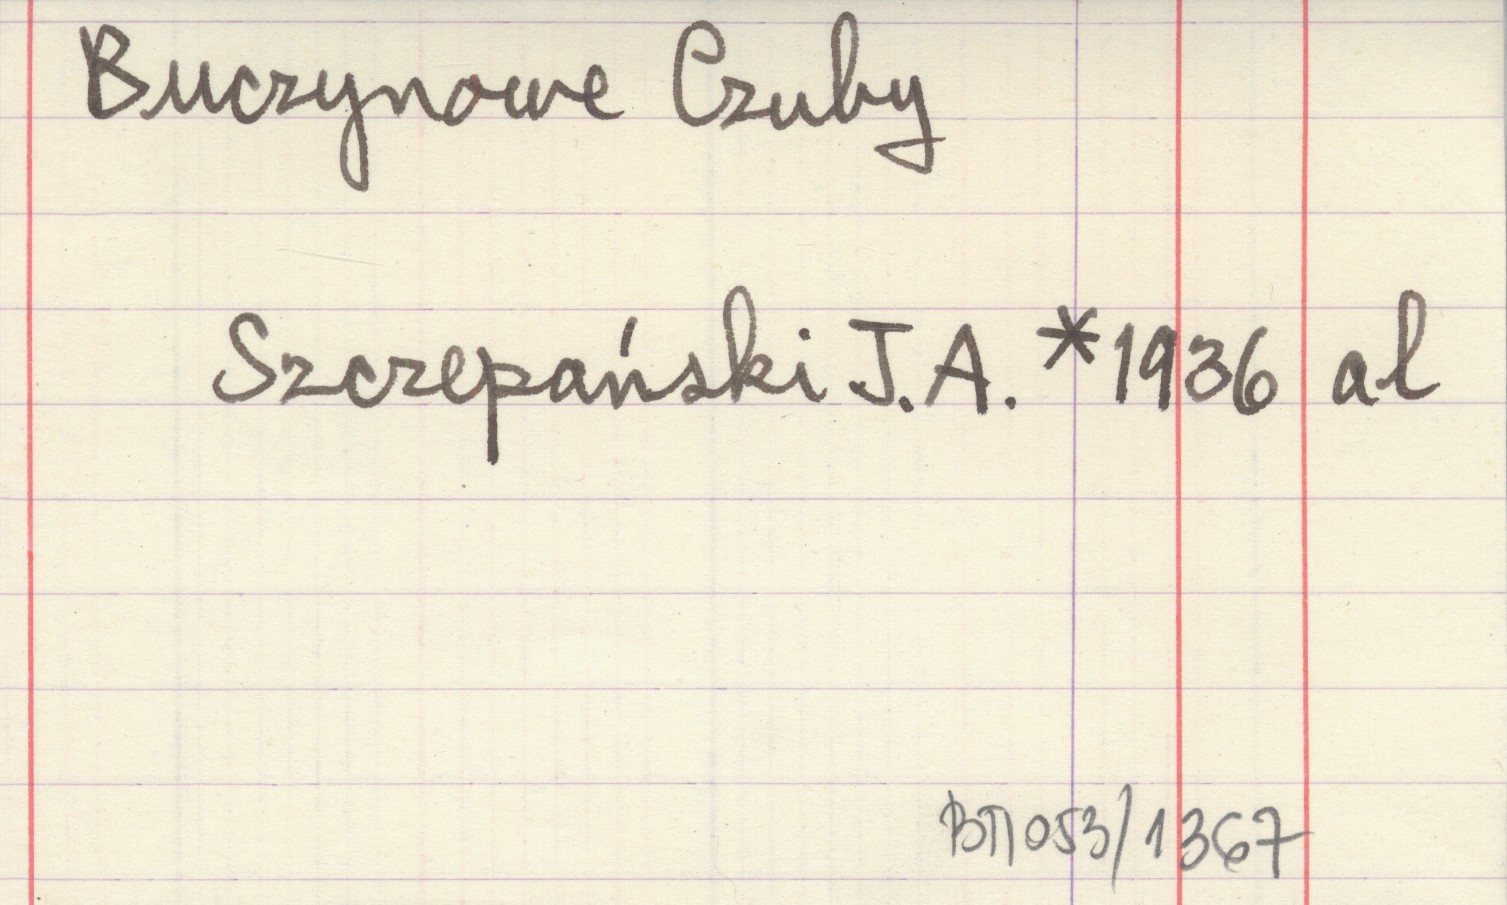 Buczynowe Czuby
Szczepański J.A. *1936 al
BΠ053/1367